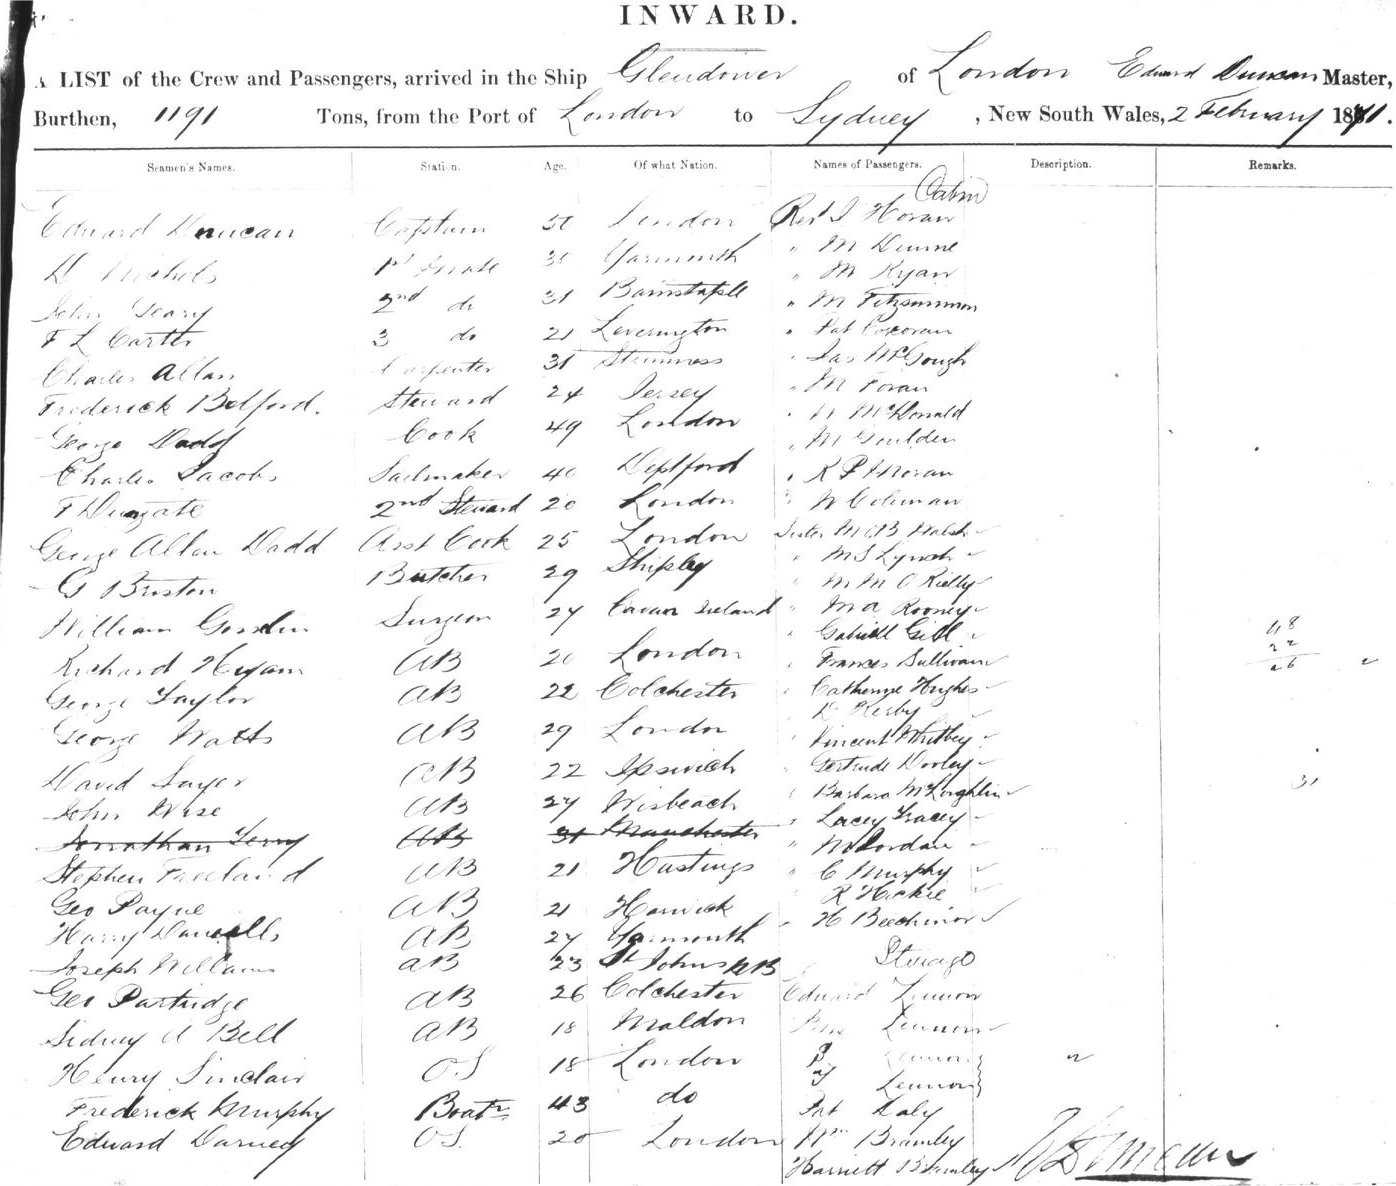 INWARD.
A LIST of the Crew and Passengers, arrived in the Ship Glendower of London Edward Duncan Master,
Burthen, 1191 Tons, from the Port of London to Sydney, New South Wales, 2 February 1871.
Seamen's Names. Station. Age. Of what Nation. Names of Passengers. Description. Remarks.
Cabin
Edward Duncan Captain 50 London Revd J Horan
D Nichols 1st Mate Yarmouth " M Dunne
" M Ryan
John Geary 2nd do 31 Barnstaple " M Fitzsimmon
F L Carter 3 do 21 Leverington " Pat Corcoran
Charles Allan Carpenter 31 Stromness " Jas McGough
Frederick Belford. Steward 24 Jersey " M Foran
George Dadd Cook 49 London " McDonald
" M Goulden
Charles Jacobs Sailmaker 40 Deptford " R P Moran
F Dungate 2nd Steward 20 London " W Coleman
George Allan Dadd Asst Cook 25 London Sister M A B Walsh
G Buxton Butcher 29 Shipley " M S Lynch
" M M O Rielly
William Gosslin Surgeon 27 Cavan Ireland " M A Rooney
" Gabriell Gill 48
Richard Hyam AB 20 London " Frances Sullivan 22
26
George Taylor AB 22 Colchester " Catherine Hughes
" D Kerby
George Watts AB 29 London Vincent Whitbey
David Sayer AB 22 Ipswich " Gertrude Dooley
John Wise AB 27 Wisbeach " Barbara McLoghlin 31
Jonathan Terry AB 31 Manchester " Lacey Tracey
" M Jordan
Stephen Freeland AB 21 Hastings " C Murphy
Geo Payne AB 21 Harwick R Hickie
Harry Daniells AB 27 Yarmouth " H Beechinor
Joseph Williams AB 23 St Johns NB Steerage
Geo Partridge AB 26 Colchester Edward Lennon
Sidney A Bell AB 18 Maldon Lennon
Henry Sinclair O.S 18 London Lennon
Lennon
Frederick Murphy Boatn 43 do Pat Daly
Edward Darney O.S. 20 London Wm Bramley
Harriett Bramley